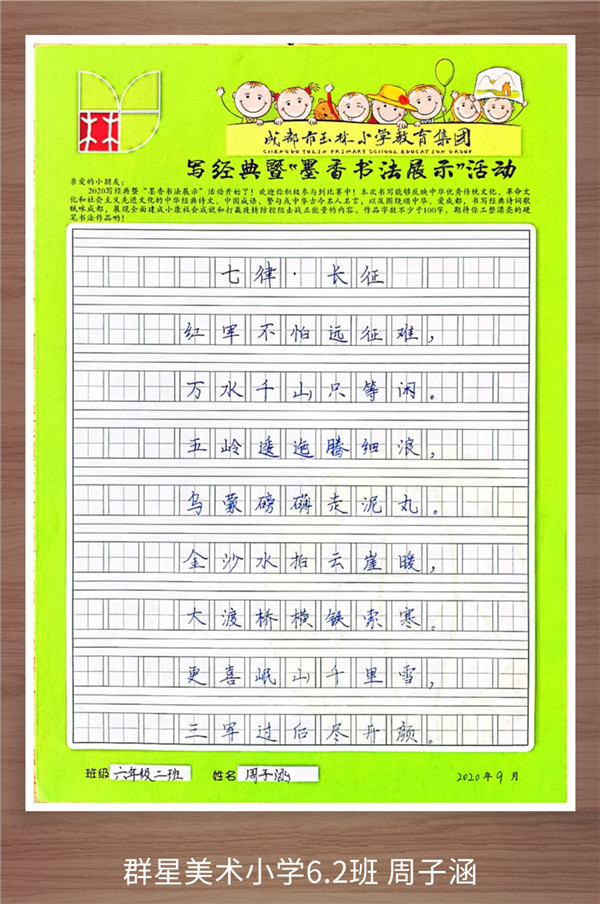 成都市玉林小学教育集团
CHENGDU YULIN PRIMARY SCHOOL EDUCATION GROUP
写经典暨“墨香书法展示”活动
亲爱的小朋友：
2020写经典暨“墨香书法展示”活动开始了！欢迎你积极参与到比赛中！本次书写能够反映中华优秀传统文化、革命文
化和社会主义先进文化的中华经典诗文、中国成语、警句或中华古今名人名言，以及围绕颂中华、爱成都，书写经典诗词歌
赋咏成都，展现全面建成小康社会成就和打赢疫情防控阻击战正能量的内容。作品字数不少于100字。期待你工整漂亮的硬
笔书法作品哟！
七律·长征
红军不怕远征难，
万水千山只等闲。
五岭逶迤腾细浪，
乌蒙磅礴走泥丸。
金沙水拍云崖暖，
大渡桥横铁索寒。
更喜岷山千里雪，
三军过后尽开颜。
班级 六年级二班 姓名 周子涵 2020年9月
群星美术小学6.2班 周子涵